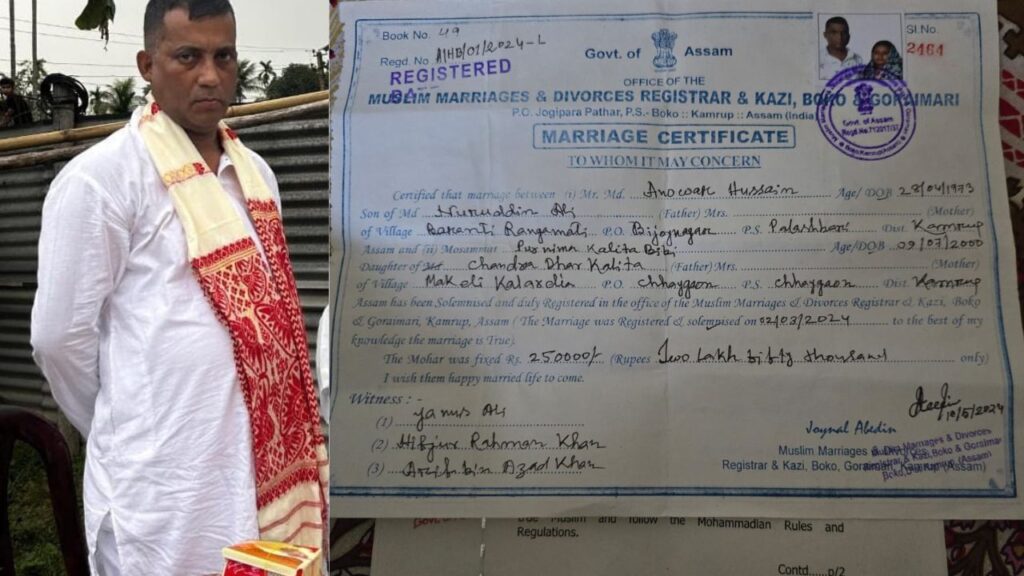 Book No. 49
Sl.No.
Regd. No. A/HB/01/2024-L
2464
Govt. of Assam
REGISTERED
OFFICE OF THE
MUSLIM MARRIAGES & DIVORCES REGISTRAR & KAZI, BOKO & GORAIMARI
P.O. Jogipara Pathar, P.S.- Boko :: Kamrup :: Assam (India)
Govt. of Assam
MARRIAGE CERTIFICATE
TO WHOM IT MAY CONCERN
Certified that marriage between (i) Mr. Md. Anowar Hussain Age/ DOB 28/04/1973
Son of Md Nuruddin Ali (Father) Mrs. (Mother)
of Village Baranti Rangamati P.O. Bijoynagar P.S. Palashbari Dist Kamrup
Assam and (ii) Mosammut Purnima Kalita Bibi Age/DOB 09/07/2000
Daughter of Md Chandra Dhar Kalita (Father) Mrs. (Mother)
of Village Makeli Kalardia P.O. Chhaygaon P.S Chhaygaon Dist. Kamrup
Assam has been Solemnised and duly Registered in the office of the Muslim Marriages & Divorces Registrar & Kazi, Boko
& Goraimari, Kamrup, Assam ( The Marriage was Registered & solemnised on 02/03/2024 to the best of my
knowledge the marriage is True).
The Mohar was fixed Rs. 250000/- (Rupees Two Lakh fifty thousand only)
I wish them happy married life to come.
Witness : -
(1) Yanus Ali
(2) Hifjur Rahman Khan
(3) Arif bin Azad Khan
10/5/2024
Joynal Abedin
Muslim Marriages & Divorces
Registrar & Kazi, Boko, Goraimari Kamrup (Assam)
true Muslim and follow the Mohammadian Rules and
Regulations.
Contd.....p/2